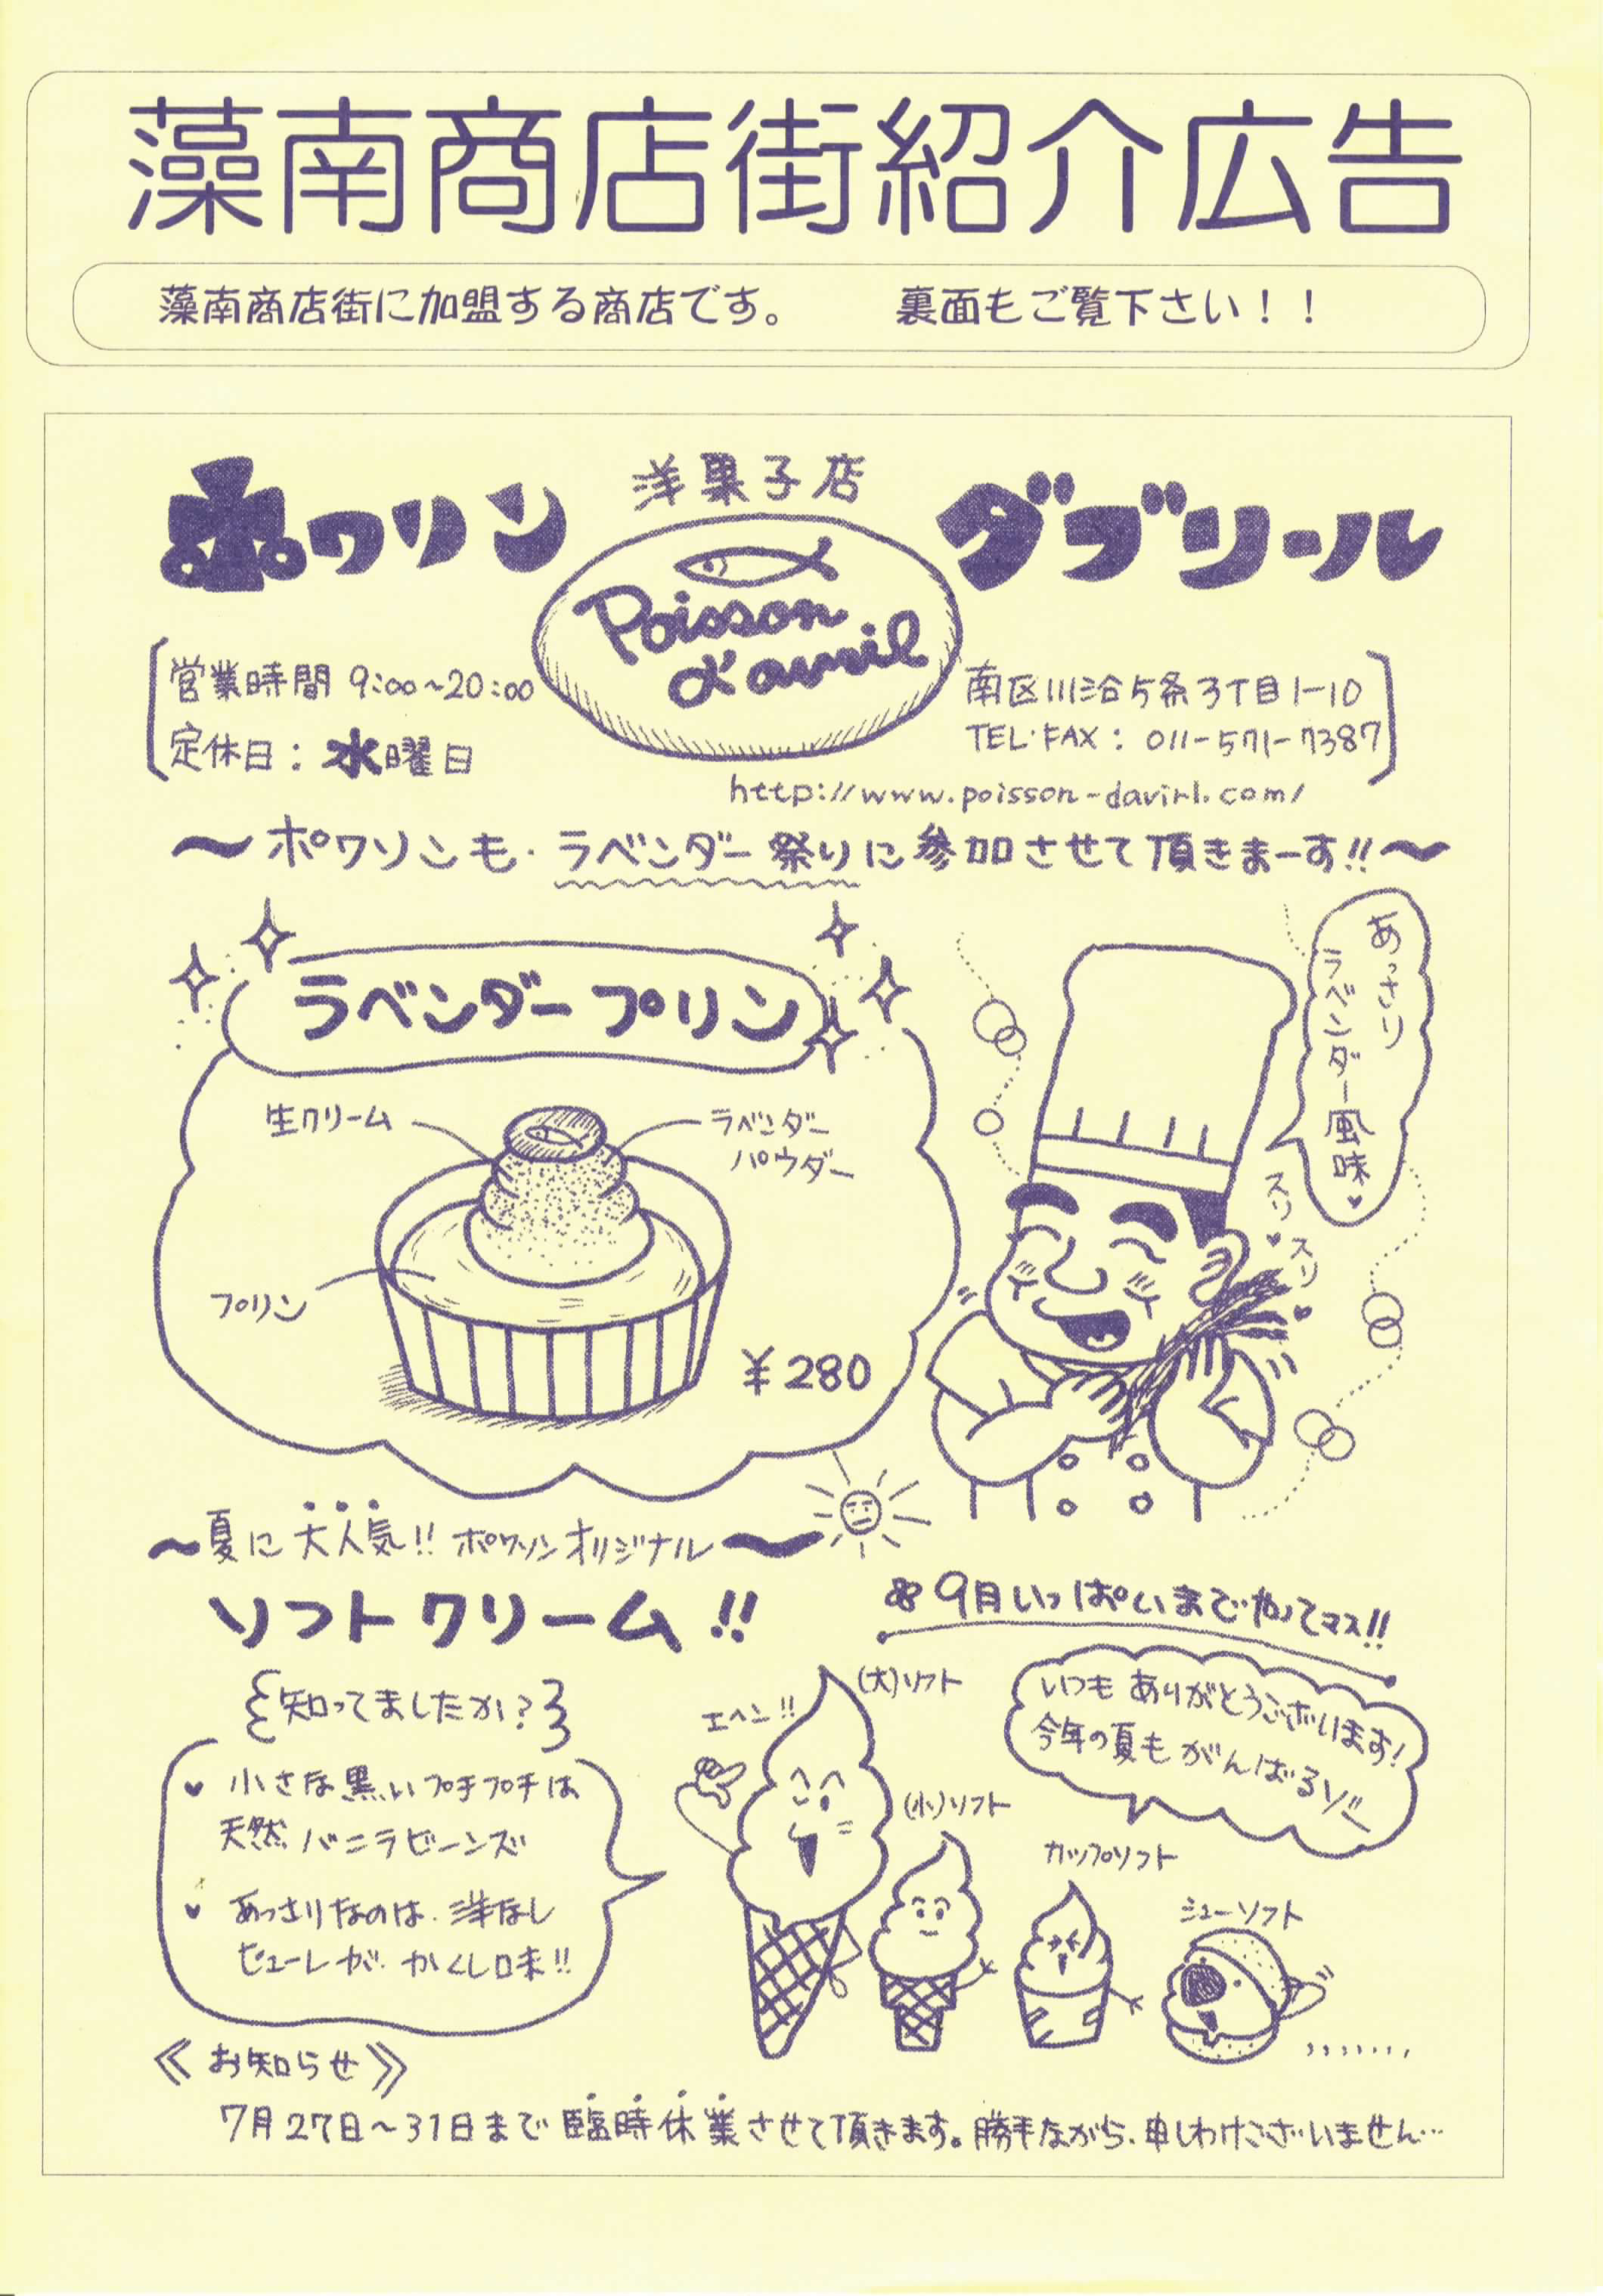 藻南商店街紹介広告
藻南商店街に加盟する商店です。 裏面もご覧下さい！！
洋菓子店
ポワソン ダブリール
Poisson
d'avril
営業時間 9:00~20:00
定休日：水曜日
南区川沿5条3丁目1-10
TEL・FAX：011-571-7387
http://www.poisson-davirl.com/
～ポワソンも・ラベンダー祭りに参加させて頂きまーす!!～
あっさり
ラベンダー風味♥
ラベンダープリン
生クリーム
ラベンダー
パウダー
プリン
¥280
スリ♥スリ♥
～夏に大人気!! ポワソンオリジナル～
ソフトクリーム!!
9月いっぱいまでやってマス!!
知ってましたか?
♥ 小さな黒いプチプチは
天然バニラビーンズ
♥ あっさりなのは、洋なし
ピューレが、かくし味!!
エヘン!!
(大)ソフト
(小)ソフト
カップソフト
シューソフト
いつもありがとうございます!
今年の夏もがんばるゾー
《お知らせ》
7月27日～31日まで臨時休業させて頂きます。勝手ながら、申しわけございません…